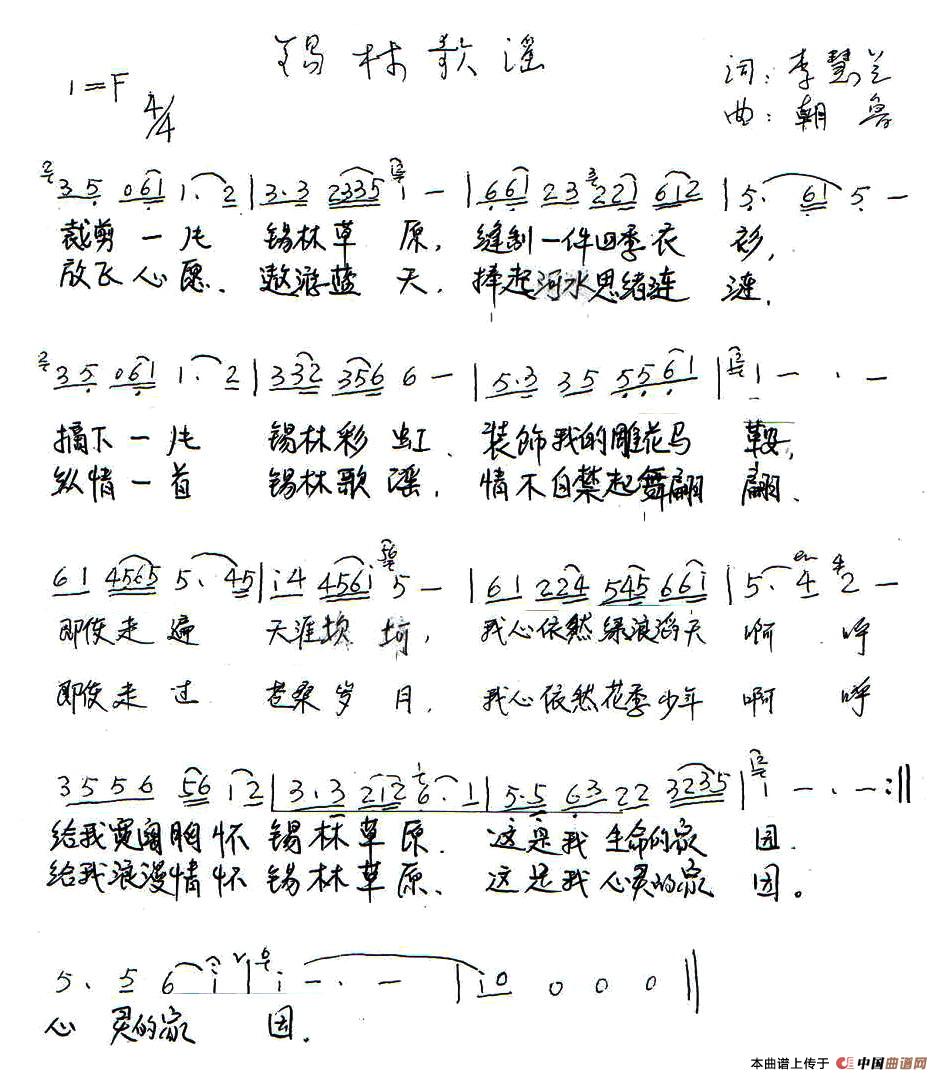 锡林歌谣
1=F 4/4
词：李慧兰
曲：朝鲁
3 5 0 6 1 1· 2 | 3·3 2335 1 — | 661 23 221 612 | 5· 61 5 —
裁剪一片 锡林草原，缝制一件四季衣衫，
放飞心愿、遨游蓝天，捧起河水思绪涟涟，
3 5 0 6 1 1· 2 | 332 356 6 — | 5·3 35 5561 | 1 — · —
摘下一片 锡林彩虹、装饰我的雕花马鞍，
纵情一首 锡林歌谣，情不自禁起舞翩翩、
61 4565 5· 45 | i4 456i 5 — | 61 224 545 66i | 5· 4 2 —
即使走遍 天涯 我心依然绿浪滔天 啊 呼
即使走过 沧桑岁月，我心依然花季少年 啊 呼
3556 56 i2 | 3·3 212 6· 1 | 5·5 63 22 3235 | 1 — · — :||
给我宽阔胸怀 锡林草原、这是我 生命的家园、
给我浪漫情怀 锡林草原、这是我 心灵的家园。
5· 5 6 i | i — · — | i0 0 0 0 ||
心 灵的家 园．
本曲谱上传于 中国曲谱网